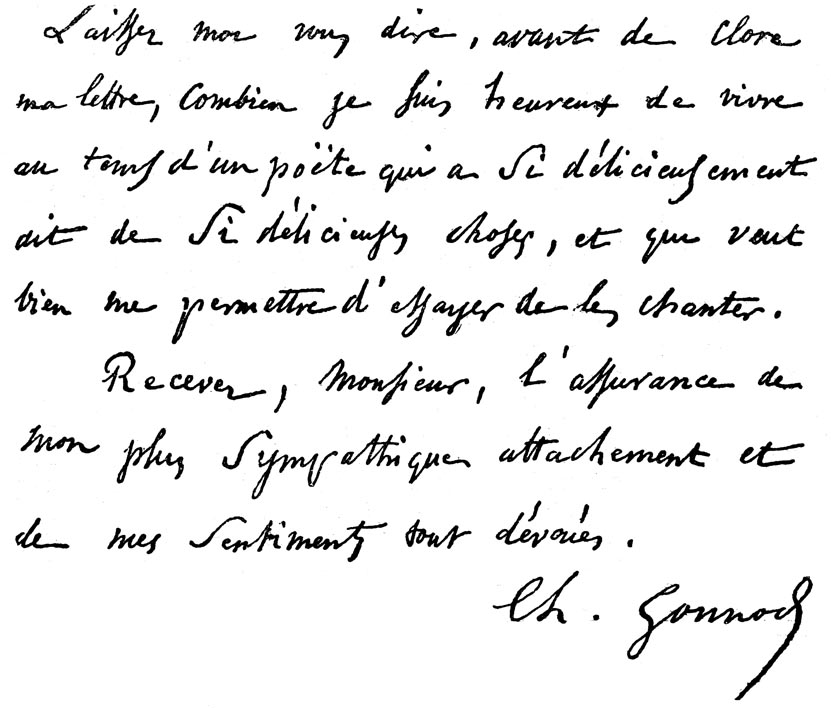 Laissez moi vous dire, avant de clore
ma lettre, combien je suis heureux de vivre
au tems d'un poëte qui a si délicieusement
dit de si délicieuses choses, et qui veut
bien me permettre d'essayer de les chanter.
Recevez, Monsieur, l'assurance de
mon plus sympathique attachement et
de mes sentiments tout dévoués.
Ch. Gounod